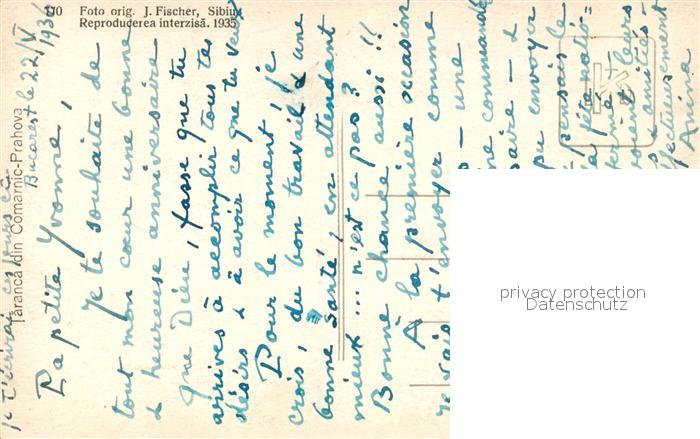 110 Foto orig. J. Fischer, Sibiu
Reproducerea interzisă. 1935
Țărancă din Comarnic-Prahova
Bucarest le 22/V
1936
Ma petite Yvonne,
Je te souhaite de
tout mon cœur une bonne
& heureuse anniversaire
que Dieu, fasse que tu
arrives à accomplir tous tes
désirs & à avoir ce que tu veux
Pour le moment, je
crois, du bon travail & une
bonne santé, en attendant
mieux ... n'est ce pas?
Bonne chance aussi!!
A la première occasion
je vais t'envoyer comme
— une
commande
— &
pu envoyer
je pensais le
la fête
leurs
amitiés
affectueusement
Anina
Je t'écrirai ces jours ci
privacy protection
Datenschutz